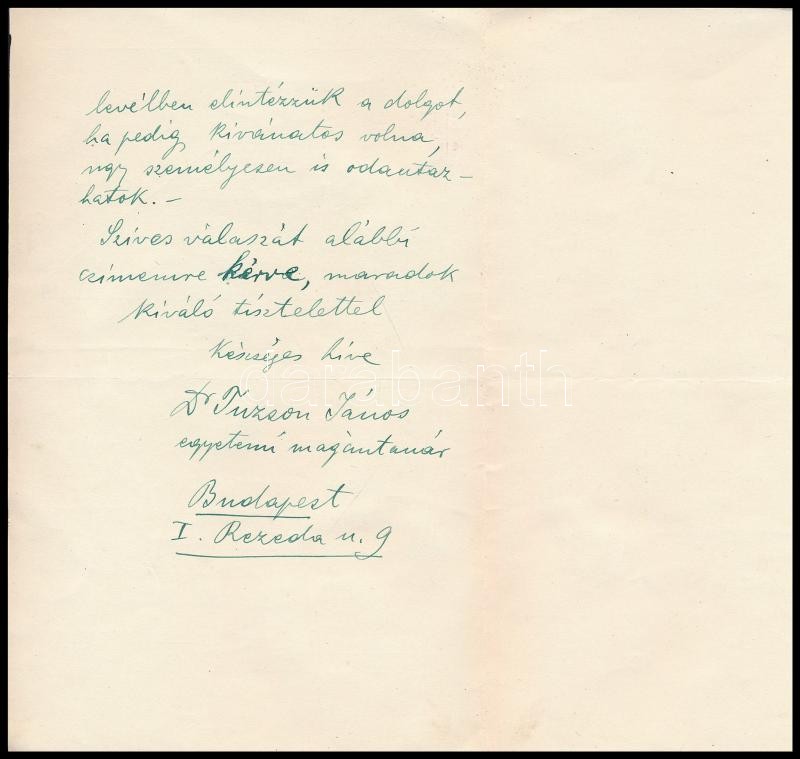 levélben elintézzük a dolgot,
ha pedig kivánatos volna,
ugy személyesen is odautaz-
hatok. -
Szives válaszát alábbi
czimemre kérve, maradok
kiváló tisztelettel
készséges hive
Dr Tuzson János
egyetemi magántanár
Budapest
I. Rezeda u. 9
darabanth